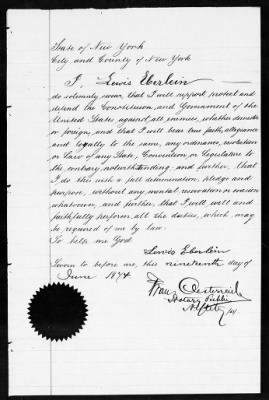 State of New York
City and County of New York
I, Lewis Eberlein
do solemnly swear that I will support protect and
defend the Constitution and Government of the
United States against all enemies, whether domestic
or foreign, and that I will bear true faith, allegiance
and loyalty to the same, any ordinance, resolution
or law of any State, Convention or Legislature to
the contrary notwithstanding and further, that
I do this with a full determination, pledge and
purpose, without any mental reservation or evasion
whatsoever, and further that I will well and
faithfully perform all the duties, which may
be required of me by law.
So help me God.
Lewis Eberlein
Sworn to before me, this nineteenth day of
June 1874
Notary Public